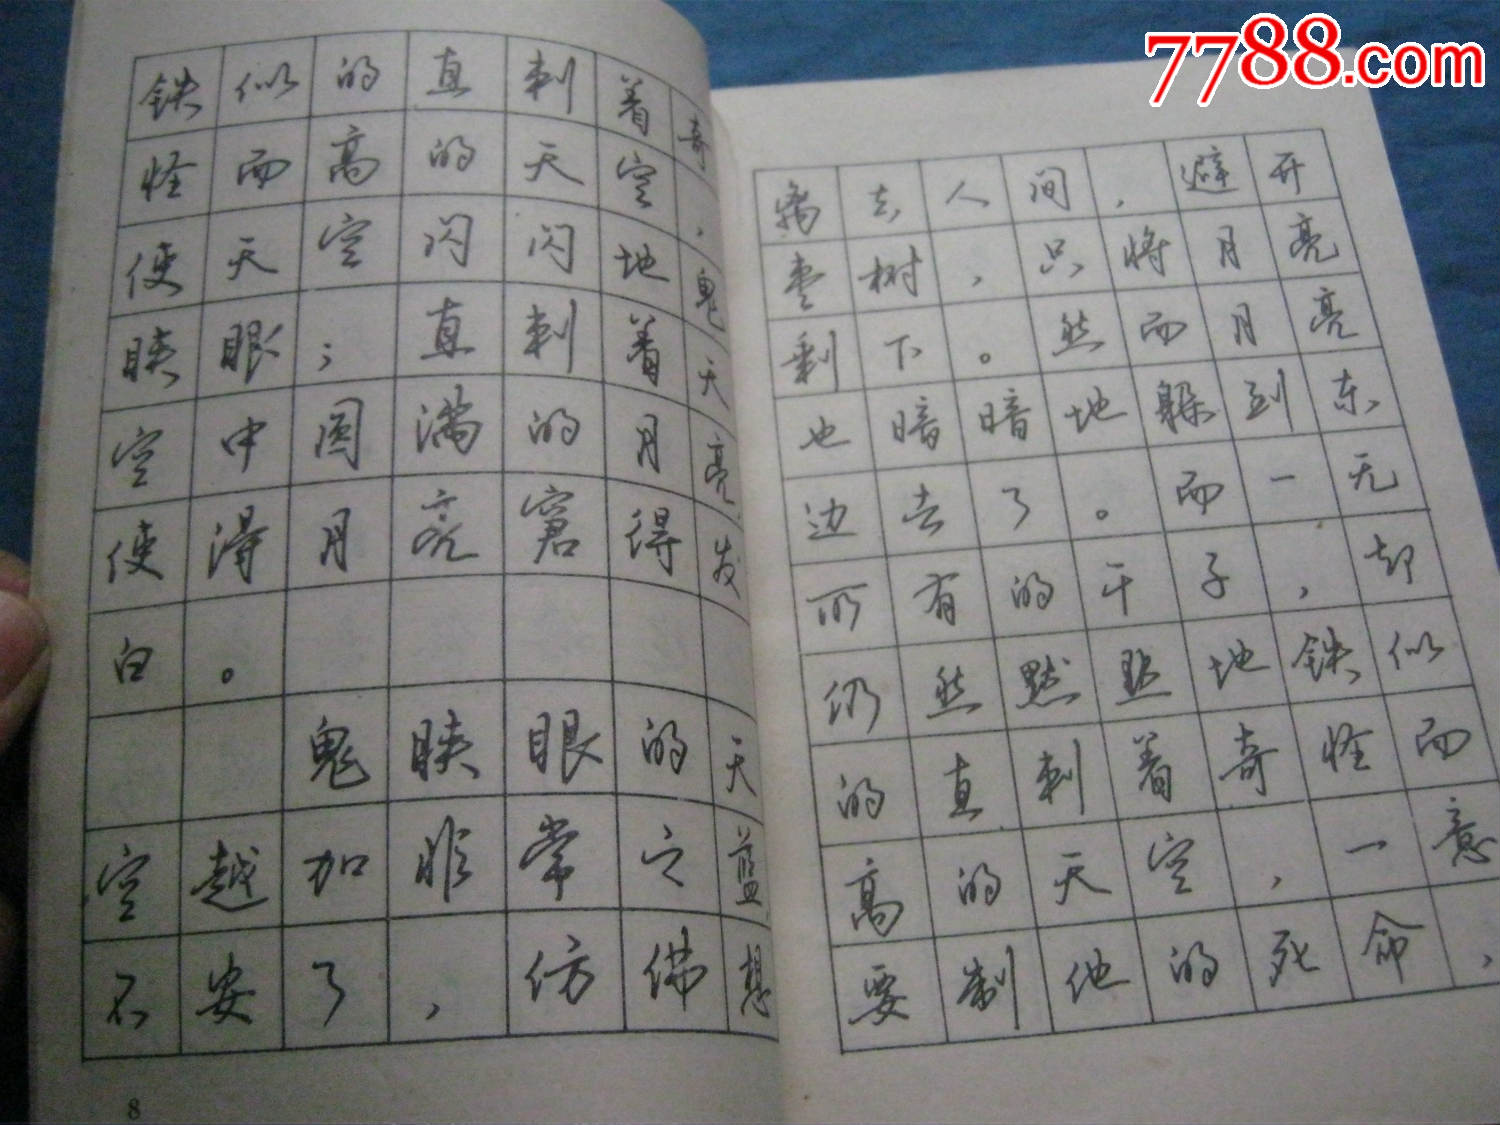 7788.com
铁似的直刺着奇
怪而高的天空，
使天空闪闪地鬼
䀹眼；直刺着天
空中圆满的月亮
使得月亮窘得发
白。
鬼䀹眼的天
空越加非常之蓝
不安了，仿佛想
8
离去人间，避开
枣树，只将月亮
剩下。然而月亮
也暗暗地躲到东
边去了。而一无
所有的干子，却
仍然默默地铁似
的直刺着奇怪而
高的天空，一意
要制他的死命，